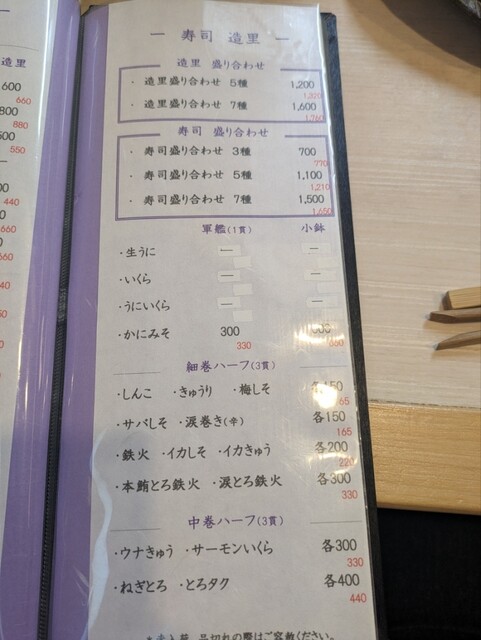 造里
600
660
800
880
500
550
440
660
660
440
― 寿司 造里 ―
造里 盛り合わせ
・ 造里盛り合わせ 5種 1,200
1,320
・ 造里盛り合わせ 7種 1,600
1,760
寿司 盛り合わせ
・ 寿司盛り合わせ 3種 700
770
・ 寿司盛り合わせ 5種 1,100
1,210
・ 寿司盛り合わせ 7種 1,500
1,650
軍艦(1貫) 小鉢
・生うに ― ―
・いくら ― ―
・うにいくら ― ―
・かにみそ 300
330 660
細巻ハーフ(3貫)
・しんこ ・きゅうり ・梅しそ 各150
165
・サバしそ ・涙巻き(辛) 各150
165
・鉄火 ・イカしそ ・イカきゅう 各200
220
・本鮪とろ鉄火 ・涙とろ鉄火 各300
330
中巻ハーフ(3貫)
・ウナきゅう ・サーモンいくら 各300
330
・ねぎとろ ・とろタク 各400
440
品切れの際はご容赦ください。